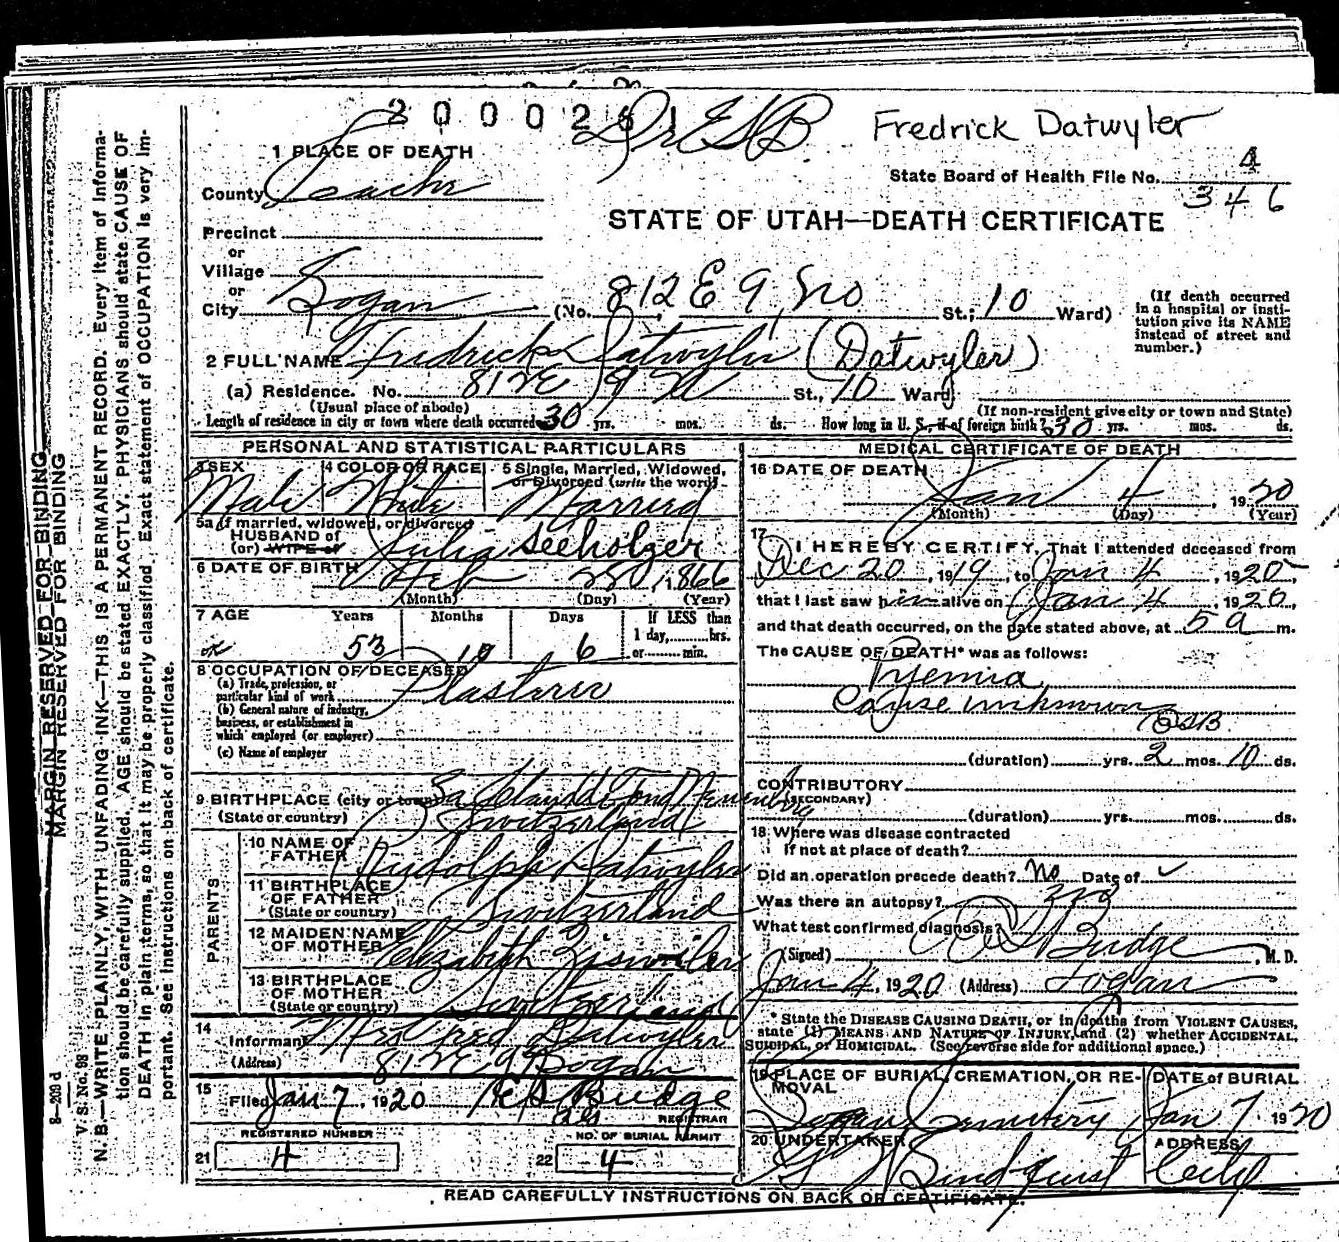 2 0 0 0 2 6 1
Fredrick Datwyler
1 PLACE OF DEATH
State Board of Health File No. 4
County Cache
346
STATE OF UTAH—DEATH CERTIFICATE
Precinct
or
Village
or
City Logan (No. 812 E 9 No St.; 10 Ward)
(If death occurred in a hospital or institution give its NAME instead of street and number.)
2 FULL NAME Fredrick Datwyler (Datwyler)
(a) Residence. No. 812 E 9 N St., 10 Ward
(Usual place of abode) (If non-resident give city or town and State)
Length of residence in city or town where death occurred 30 yrs. mos. ds. How long in U. S., if of foreign birth? 30 yrs. mos. ds.
PERSONAL AND STATISTICAL PARTICULARS
3 SEX Male
4 COLOR OR RACE White
5 Single, Married, Widowed, or Divorced (write the word) Married
5a If married, widowed, or divorced
HUSBAND of
(or) WIFE of Julia Seeholzer
6 DATE OF BIRTH Feb 28, 1866
(Month) (Day) (Year)
7 AGE Years Months Days If LESS than
1 day, hrs.
53 10 6 or min.
8 OCCUPATION OF DECEASED
(a) Trade, profession, or
particular kind of work Plasterer
(b) General nature of industry,
business, or establishment in
which employed (or employer)
(c) Name of employer
9 BIRTHPLACE (city or town)
(State or country) Switzerland
PARENTS
10 NAME OF FATHER Rudolph Datwyler
11 BIRTHPLACE OF FATHER
(State or country) Switzerland
12 MAIDEN NAME OF MOTHER Elizabeth Zisweiler
13 BIRTHPLACE OF MOTHER
(State or country) Switzerland
14
Informant Mrs Fred Datwyler
(Address) 812 E 9 Logan
15
Filed Jan 7, 1920 Budge
REGISTRAR
REGISTERED NUMBER
21 4
NO. OF BURIAL PERMIT
22 4
MEDICAL CERTIFICATE OF DEATH
16 DATE OF DEATH
Jan 4 1920
(Month) (Day) (Year)
17
I HEREBY CERTIFY, That I attended deceased from
Dec 20, 1919, to Jan 4, 1920,
that I last saw him alive on Jan 4, 1920,
and that death occurred, on the date stated above, at 5 a m.
The CAUSE OF DEATH* was as follows:
Pyemia
Cause unknown
(duration) yrs. 2 mos. 10 ds.
CONTRIBUTORY
(SECONDARY)
(duration) yrs. mos. ds.
18 Where was disease contracted
if not at place of death?
Did an operation precede death? No Date of
Was there an autopsy? no
What test confirmed diagnosis?
(Signed) Budge, M. D.
Jan 4, 1920 (Address) Logan
* State the DISEASE CAUSING DEATH, or in deaths from VIOLENT CAUSES,
state (1) MEANS AND NATURE OF INJURY, and (2) whether ACCIDENTAL,
SUICIDAL, or HOMICIDAL. (See reverse side for additional space.)
19 PLACE OF BURIAL, CREMATION, OR REMOVAL
Logan Cemetery
DATE of BURIAL
Jan 7 1920
20 UNDERTAKER
Lindquist
ADDRESS
City
READ CAREFULLY INSTRUCTIONS ON BACK OF CERTIFICATE.
MARGIN RESERVED FOR BINDING
MARGIN RESERVED FOR BINDING
V. S. No. 98
N. B.—WRITE PLAINLY, WITH UNFADING INK—THIS IS A PERMANENT RECORD. Every item of informa-
tion should be carefully supplied. AGE should be stated EXACTLY. PHYSICIANS should state CAUSE OF
DEATH in plain terms, so that it may be properly classified. Exact statement of OCCUPATION is very im-
portant. See instructions on back of certificate.